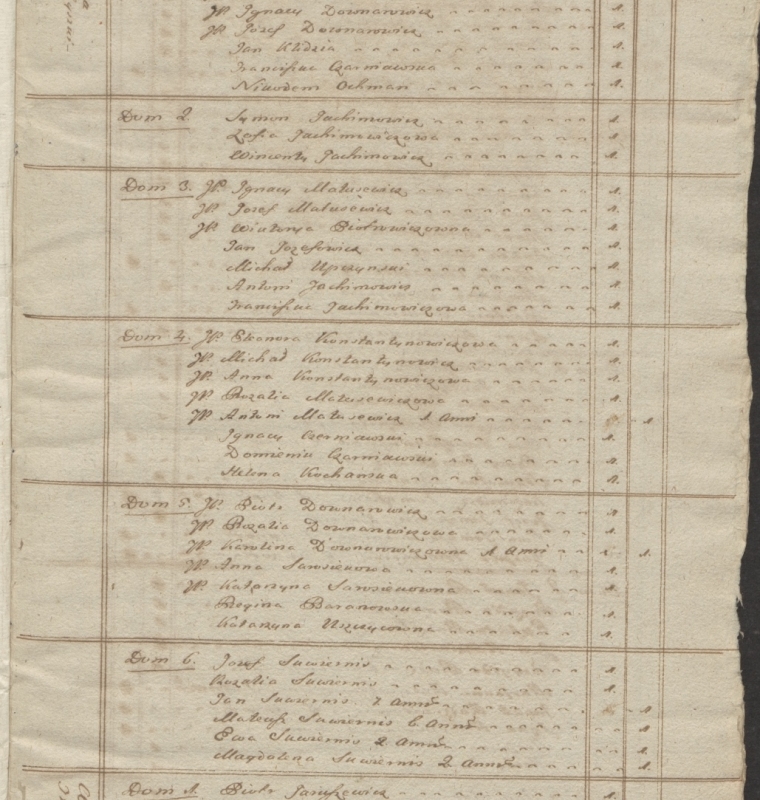 JP. Ignacy Downarowicz 1.
JP. Jozef Downarowicz 1.
Jan 1.
Franciszka Czarniawska 1.
Nikodem Ochman 1.
Dom 2. Symon Jachimowicz 1.
Zofia Jachimowiczowa 1.
Wincenty Jachimowicz 1.
Dom 3. JP. Ignacy Matusewicz 1.
JP. Jozef Matusewicz 1.
JP. Wiktorya Piotrowiczowna 1.
Jan Jozefowicz 1.
Michał 1.
Antoni Jachimowicz 1.
Jachimowiczowa 1.
Dom 4. JP. Eleonora Konstantynowiczowa 1.
JP. Michał Konstantynowicz 1.
JP. Anna Konstantynowiczowa 1.
JP. Rozalia Matusewiczowa 1.
JP. Antoni Matusewicz 1 Anni 1.
Ignacy Czerniawski 1.
Czarniawski 1.
Helena Kochanska 1.
Dom 5. JP. Piotr Downarowicz 1.
JP. Rozalia Downarowiczowa 1.
JP. Karolina Downarowiczowna 1 Anni 1.
JP. Anna Sarosiekowa 1.
JP. Katarzyna Sarosiekowna 1.
Regina Baranowska 1.
Katarzyna 1.
Dom 6. Jozef Suwiernis 1.
Rozalia Suwiernis 1.
Jan Suwiernis 7 1.
Mateusz Suwiernis 6 1.
Ewa Suwiernis 2 1.
Magdalena Suwiernis 2 1.
Dom 1. Piotr 1.